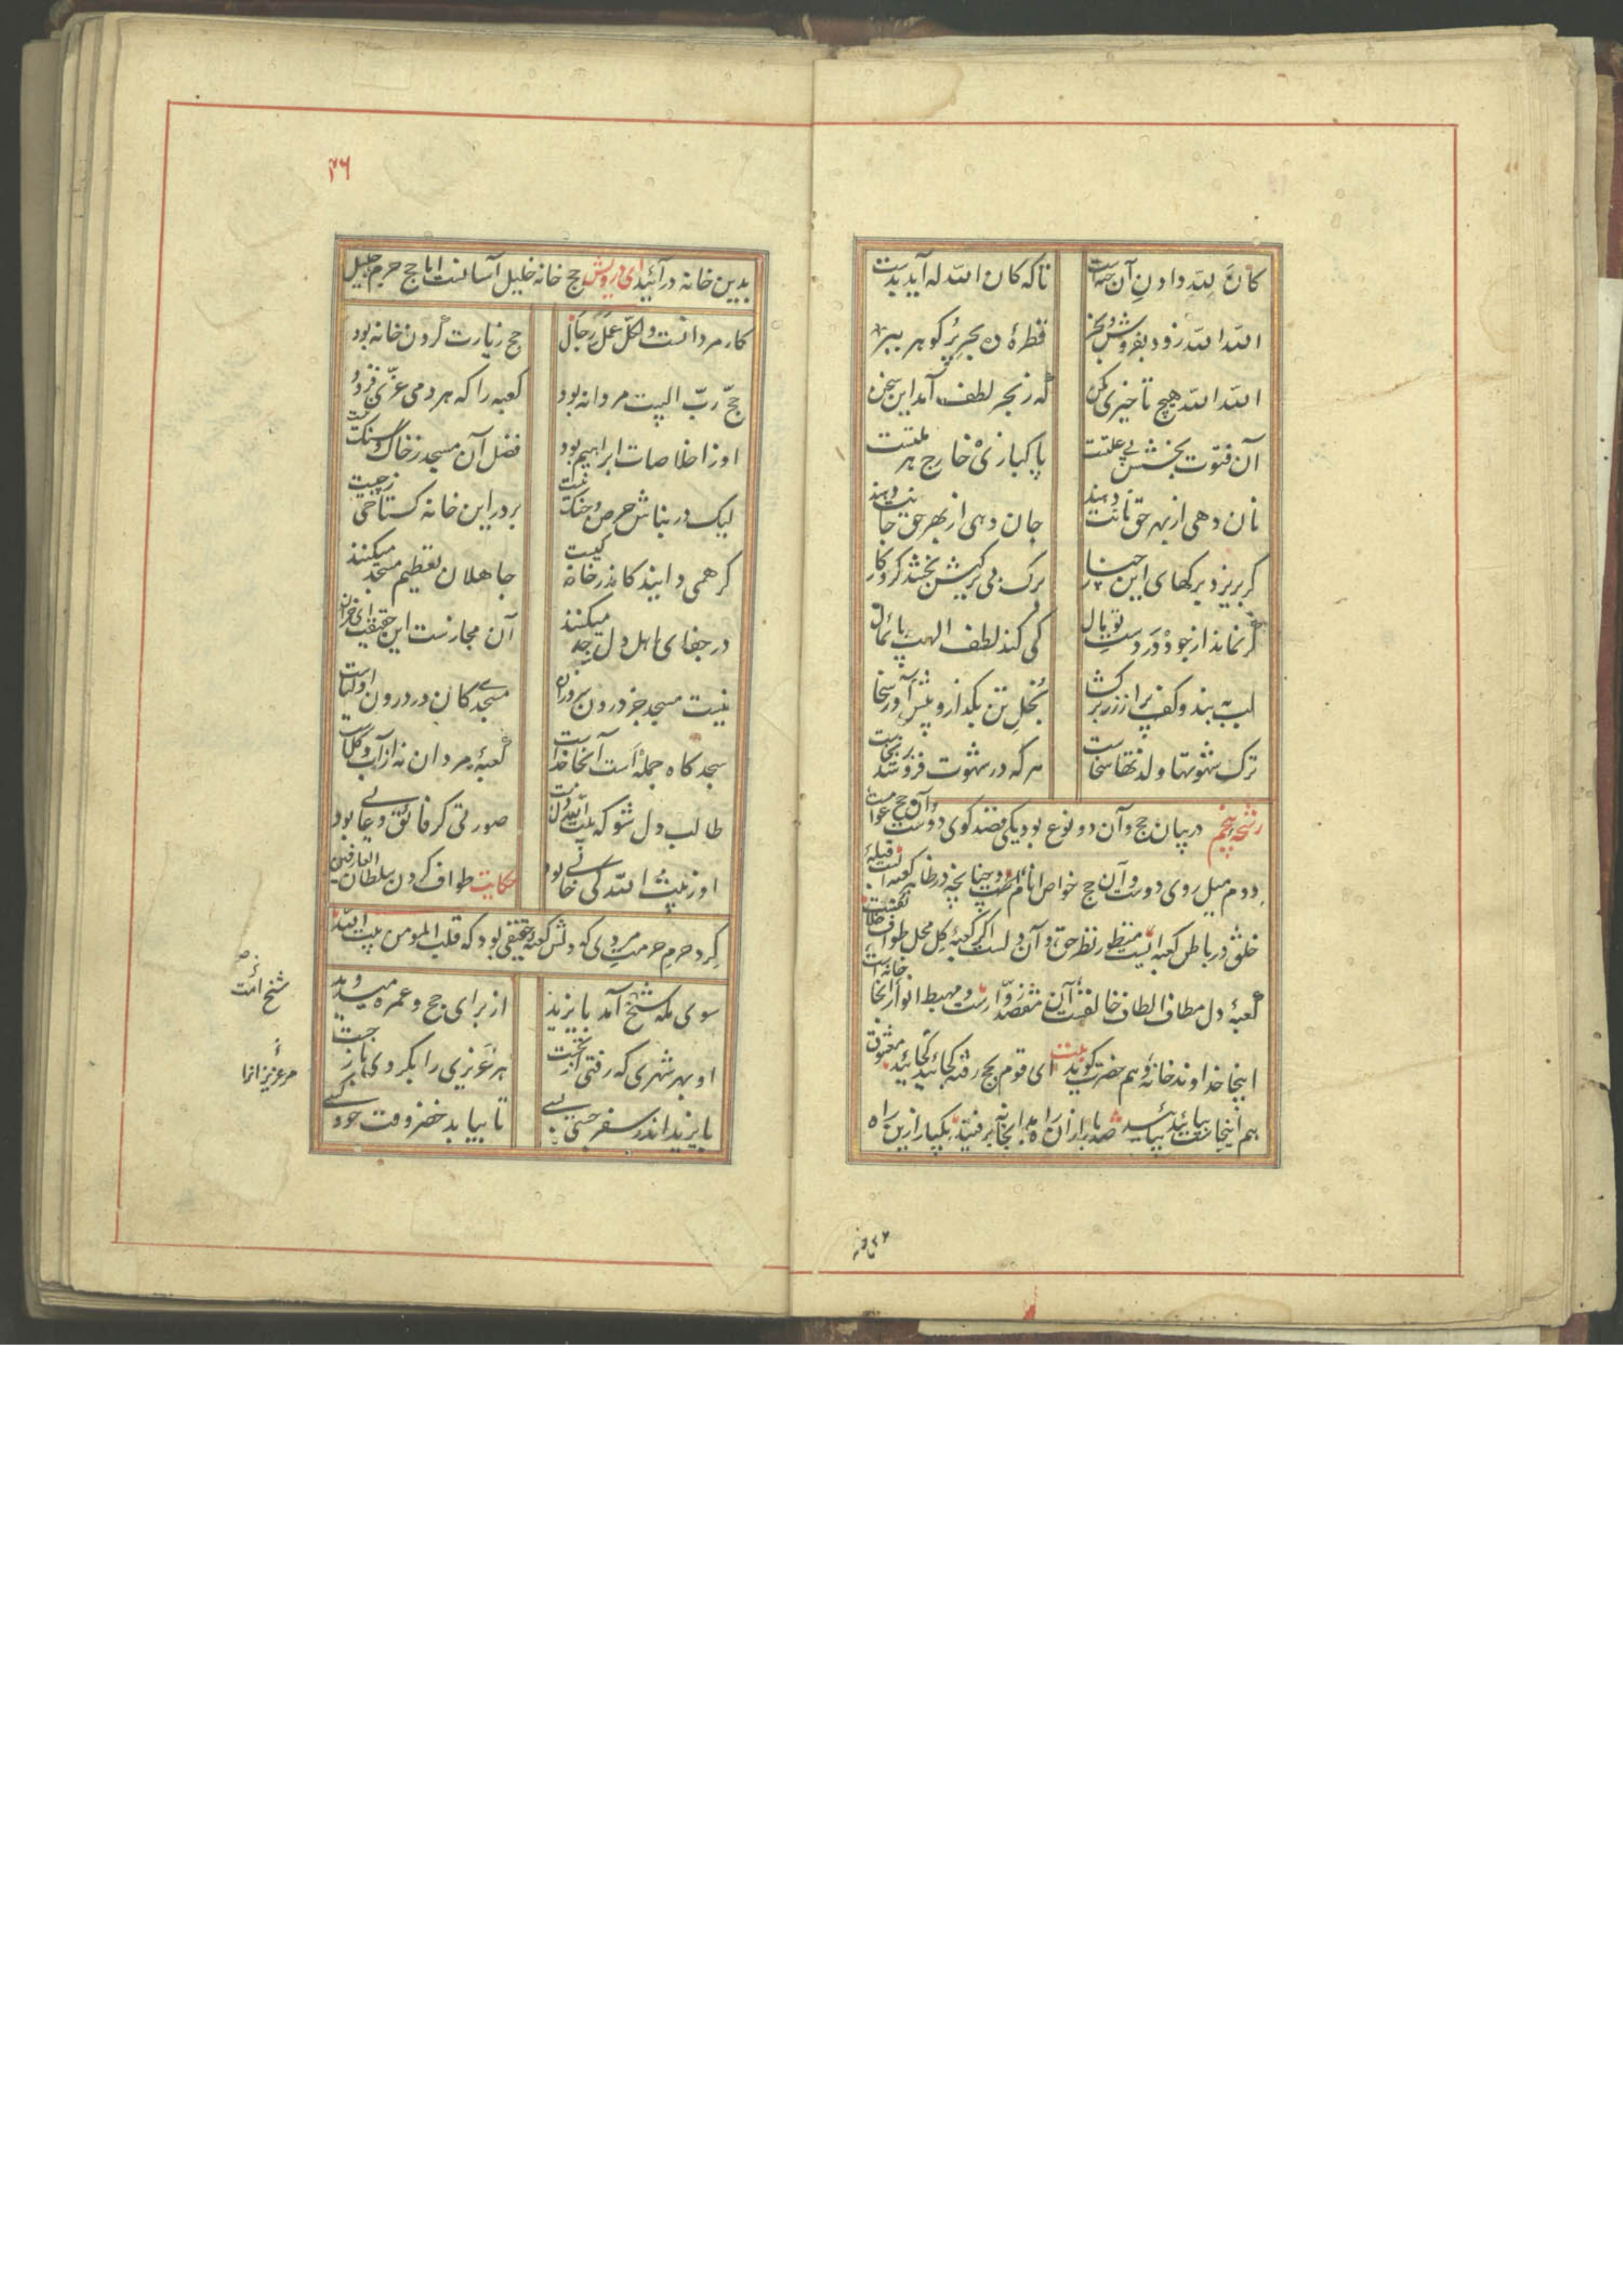 کان لله دادن آن حبه است
تا که کان الله له آید بدست
الله الله زود بفروش و بخر
قطرهٔ ده بحر پر گوهر ببر
الله الله هیچ تاخیری مکن
که ز بحر لطف آمد این سخن
آن فتوت بخشش بی علتست
پاکبازی خارج هر ملتست
نان دهی از بهر حق نانت دهند
جان دهی از بهر حق جانت دهند
گر بریزد برگهای این چنار
برگ بی برگیش بخشد کردگار
گر نماند از جود در دست تو مال
کی کند لطف الهت پایمال
لب ببند و کف پر از زر برگشا
بخل تن بگذار و پیش آور سخا
ترک شهوتها و لذتها سخاست
هر که در شهوت فرو شد بر نخاست
رشحهٔ پنجم در بیان حج و آن دو نوع بود یکی قصد کوی دوست و آن حج عوامست
دوم میل روی دوست و آن حج خواص انام است و چنانچه در ظاهر کعبه ایست قبلهٔ
خلق در باطن کعبه ایست منظور نظر حق و آن دلست اگر کعبهٔ گل محل طواف خلایقست
کعبهٔ دل مطاف الطاف خالقست آن مقصد زوارست و مهبط انوار آنجا خانه است
اینجا خداوند خانه و هم حضرت گویند بیت ای قوم بحج رفته کجائید کجائید معشوق
هم اینجاست بیائید بیائید صد بار از آن راه بدانجانه برفتید یکبار ازین راه
بدین خانه
۳۶
بدین خانه در آئید ای درویش حج خانه خلیل آسانست اما حج حرم جلیل
کار مردانست و لکل عمل رجال
حج زیارت کردن خانه بود
حج رب البیت مردانه بود
کعبه را که هر دمی عزی فزود
او ز اخلاصات ابراهیم بود
فضل آن مسجد ز خاک و سنگ نیست
لیک در بناش حرص و جنگ نیست
بر در این خانه گستاخی ز چیست
گر همی دانید کاندر خانه کیست
جاهلان تعظیم مسجد میکنند
در جفای اهل دل جد میکنند
آن مجازست این حقیقت ای خران
نیست مسجد جز درون سروران
مسجدی کان در درون اولیاست
سجده گاه جمله است آنجا خداست
کعبهٔ مردان نه از آب و گلست
طالب دل شو که بیت الله دلست
صورتی کو فائق و عالی بود
او ز بیت الله کی خالی بود
حکایت طواف کردن سلطان العارفین
گرد حرم حرمت مردی که دلش کعبهٔ حقیقی بود که قلب المومن بیت الله
سوی مکه شیخ آمد بایزید
از برای حج و عمره میدوید
او بهر شهری که رفتی از نخست
هر عزیزی را بکردی باز جست
بایزید اندر سفر جستی بسی
تا بیابد خضر وقت خود کسی
شیخ امت
مر عزیزانرا